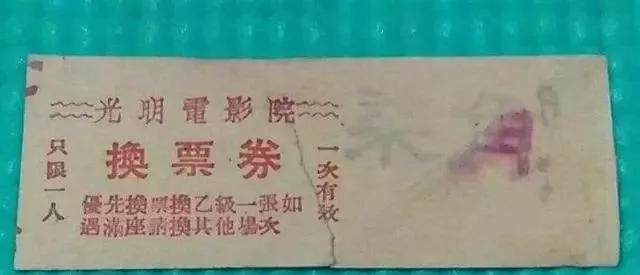 光明電影院
換票券
只限一人
一次有效
優先換票換乙級一張如
遇滿座請換其他場次
月